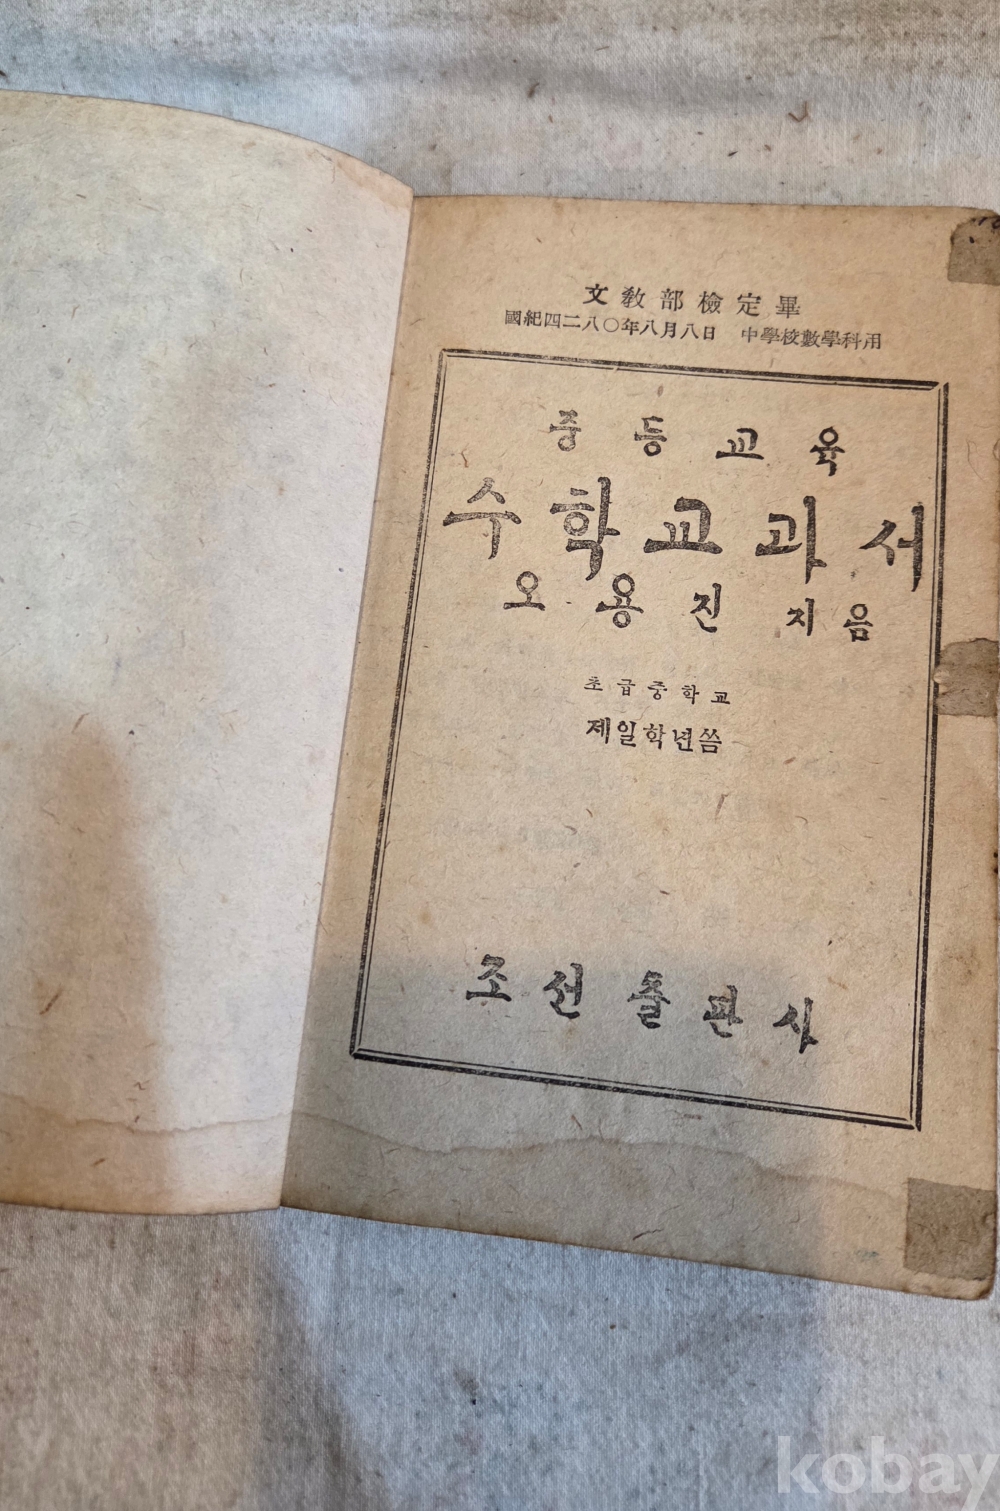 文敎部檢定畢
國紀四二八〇年八月八日 中學校數學科用
중등교육
수학교과서
오용진 지음
초급중학교
제일학년씀
조선출판사
kobay